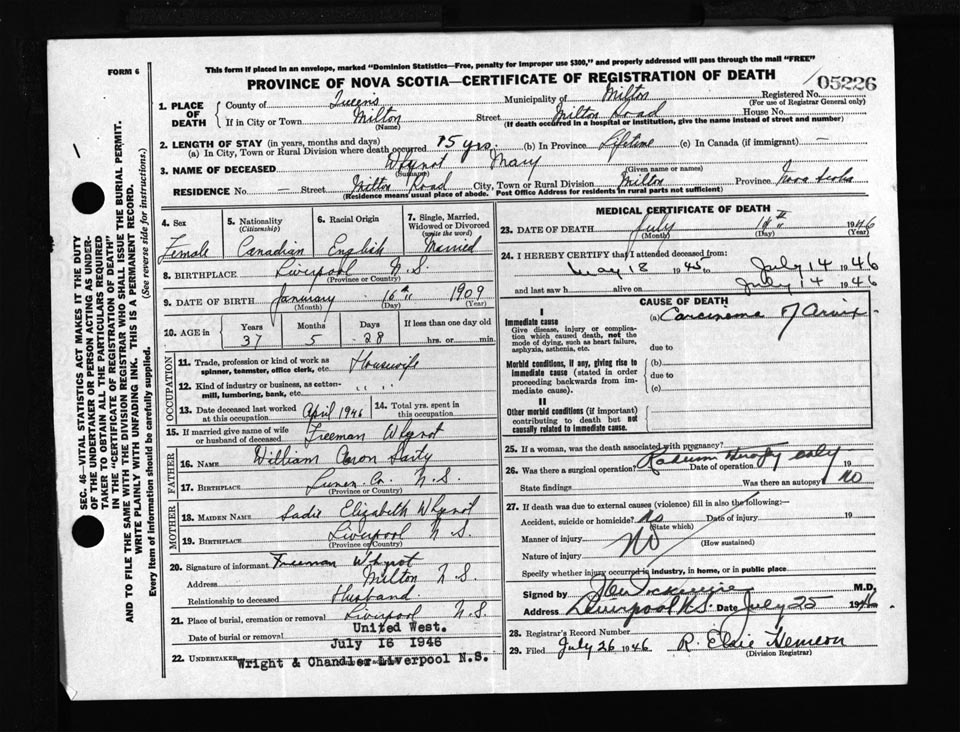 FORM 6
This form if placed in an envelope, marked "Dominion Statistics—Free, penalty for improper use $300," and properly addressed will pass through the mail "FREE"
PROVINCE OF NOVA SCOTIA—CERTIFICATE OF REGISTRATION OF DEATH
05226
1. PLACE OF DEATH
County of Queens Municipality of Milton Registered No.
(For use of Registrar General only)
If in City or Town Milton Street Milton Road House No.
(Name) (If death occurred in a hospital or institution, give the name instead of street and number)
2. LENGTH OF STAY (in years, months and days)
(a) In City, Town or Rural Division where death occurred 15 yrs. (b) In Province Lifetime (c) In Canada (if immigrant) —
3. NAME OF DECEASED Whynot Mary
(Surname) (Given name or names)
RESIDENCE No. — Street Milton Road City, Town or Rural Division Milton Province Nova Scotia
(Residence means usual place of abode. Post Office Address for residents in rural parts not sufficient)
4. Sex Female
5. Nationality (Citizenship) Canadian
6. Racial Origin English
7. Single, Married, Widowed or Divorced (write the word) Married
8. BIRTHPLACE Liverpool N.S.
(Province or Country)
9. DATE OF BIRTH January 16th 1909
(Month) (Day) (Year)
10. AGE in
Years Months Days If less than one day old
37 5 28 hrs. or min.
OCCUPATION
11. Trade, profession or kind of work as spinner, teamster, office clerk, etc. Housewife
12. Kind of industry or business, as cotton-mill, lumbering, bank, etc. " "
13. Date deceased last worked at this occupation April 1946
14. Total yrs. spent in this occupation
15. If married give name of wife or husband of deceased Freeman Whynot
FATHER
16. NAME William Aaron
17. BIRTHPLACE Lunen. Co. N.S.
MOTHER
18. MAIDEN NAME Sadie Elizabeth Whynot
19. BIRTHPLACE Liverpool N.S.
(Province or Country)
20. Signature of informant Freeman Whynot
Address Milton N.S.
Relationship to deceased Husband
21. Place of burial, cremation or removal Liverpool N.S.
United West.
Date of burial or removal July 16 1946
22. UNDERTAKER Wright & Chandler Liverpool N.S.
MEDICAL CERTIFICATE OF DEATH
23. DATE OF DEATH July 14th 1946
(Month) (Day) (Year)
24. I HEREBY CERTIFY that I attended deceased from:
May 18 1945 to July 14 1946
and last saw h alive on July 14 1946
CAUSE OF DEATH
I
Immediate cause (a) Carcinoma of
Give disease, injury or complication which caused death, not the mode of dying, such as heart failure, asphyxia, asthenia, etc.
due to
Morbid conditions, if any, giving rise to immediate cause (stated in order proceeding backwards from immediate cause).
(b)
due to
(c)
II
Other morbid conditions (if important) contributing to death but not causally related to immediate cause.
25. If a woman, was the death associated with pregnancy?
26. Was there a surgical operation? Radium therapy only Date of operation 19
State findings Was there an autopsy? NO
27. If death was due to external causes (violence) fill in also the following:
Accident, suicide or homicide? No Date of injury 19
(State which)
Manner of injury No
(How sustained)
Nature of injury
Specify whether injury occurred in industry, in home, or in public place
Signed by M.D.
Address Liverpool N.S. Date July 25 1946
28. Registrar's Record Number
29. Filed July 26 1946 R. Elsie Hemeon
(Division Registrar)
SEC. 46—VITAL STATISTICS ACT MAKES IT THE DUTY
OF THE UNDERTAKER OR PERSON ACTING AS UNDER-
TAKER TO OBTAIN ALL THE PARTICULARS REQUIRED
IN THE "CERTIFICATE OF REGISTRATION OF DEATH"
AND TO FILE THE SAME WITH THE DIVISION REGISTRAR WHO SHALL ISSUE THE BURIAL PERMIT.
WRITE PLAINLY WITH UNFADING INK. THIS IS A PERMANENT RECORD.
Every item of information should be carefully supplied. (See reverse side for instructions.)